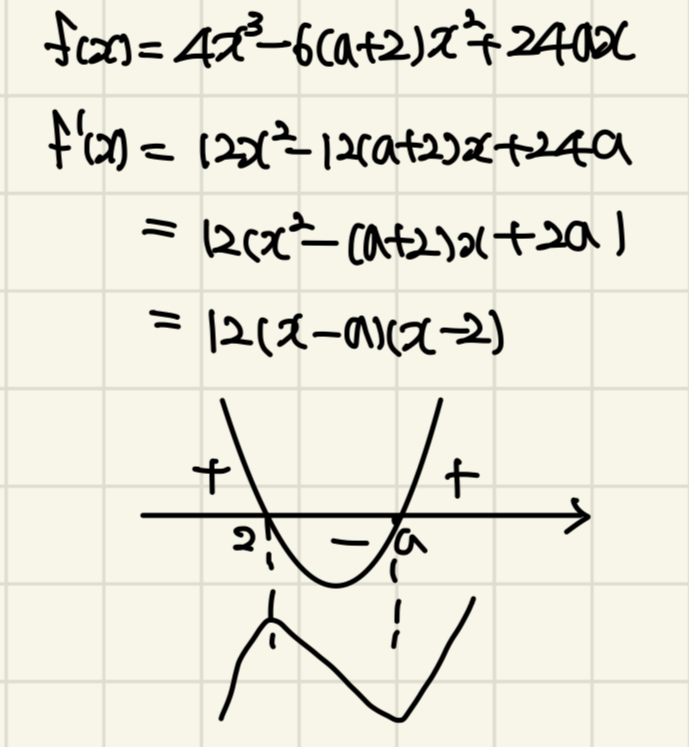 f(x) = 4x³ - 6(a+2)x² + 24ax
f'(x) = 12x² - 12(a+2)x + 24a
= 12(x² - (a+2)x + 2a)
= 12(x-a)(x-2)
+ +
2 - a